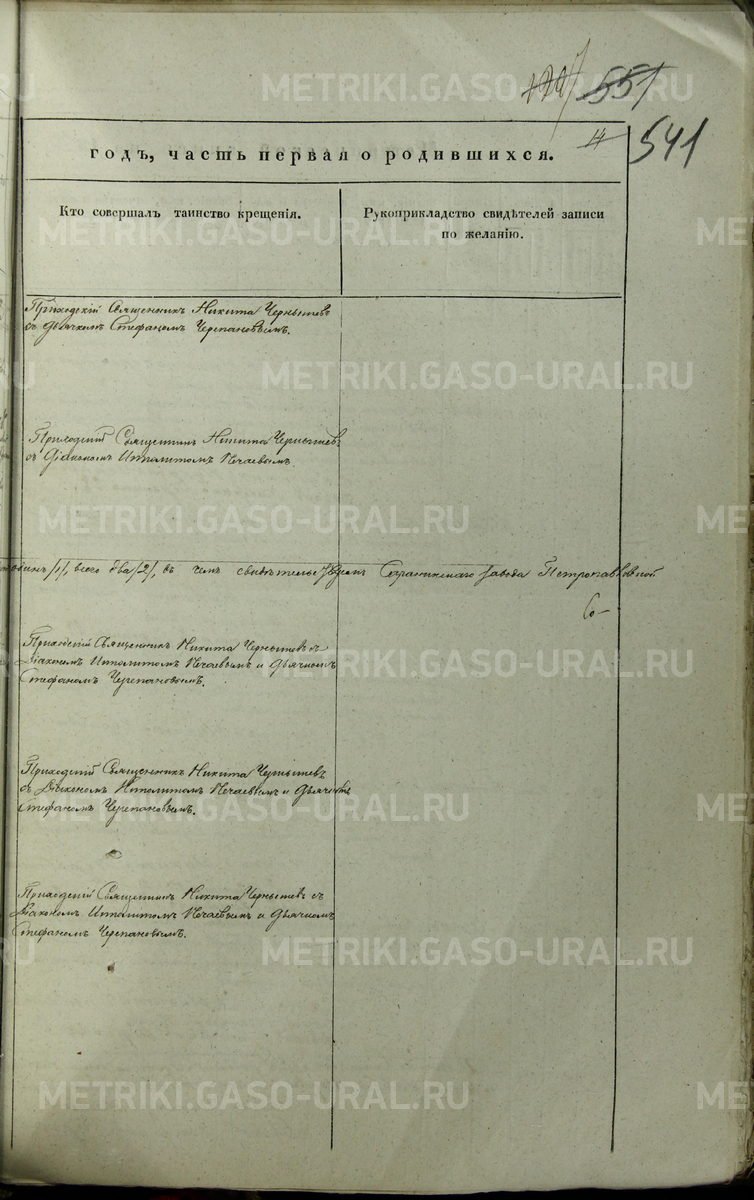 551
14
541
годъ, часть первая о родившихся.
Кто совершалъ таинство крещенія.
Рукоприкладство свидѣтелей записи
по желанію.
Приходскій Священникъ Никита Чернышевъ
съ дьячкомъ Стефаномъ Черепановымъ.
Приходскій Священникъ Никита Чернышевъ
съ Діакономъ Ипполитомъ Нечаевымъ.
одинъ /1/, всего два /2/, въ чемъ свидѣтельствуемъ завода Петропавловской
Со-
Приходскій Священникъ Никита Чернышевъ съ
Діакономъ Ипполитомъ Нечаевымъ и Дьячкомъ
Стефаномъ Черепановымъ.
Приходскій Священникъ Никита Чернышевъ
съ Діакономъ Ипполитомъ Нечаевымъ и Дьячкомъ
Стефаномъ Черепановымъ.
Приходскій Священникъ Никита Чернышевъ съ
Діакономъ Ипполитомъ Нечаевымъ и Дьячкомъ
Стефаномъ Черепановымъ.
METRIKI.GASO-URAL.RU